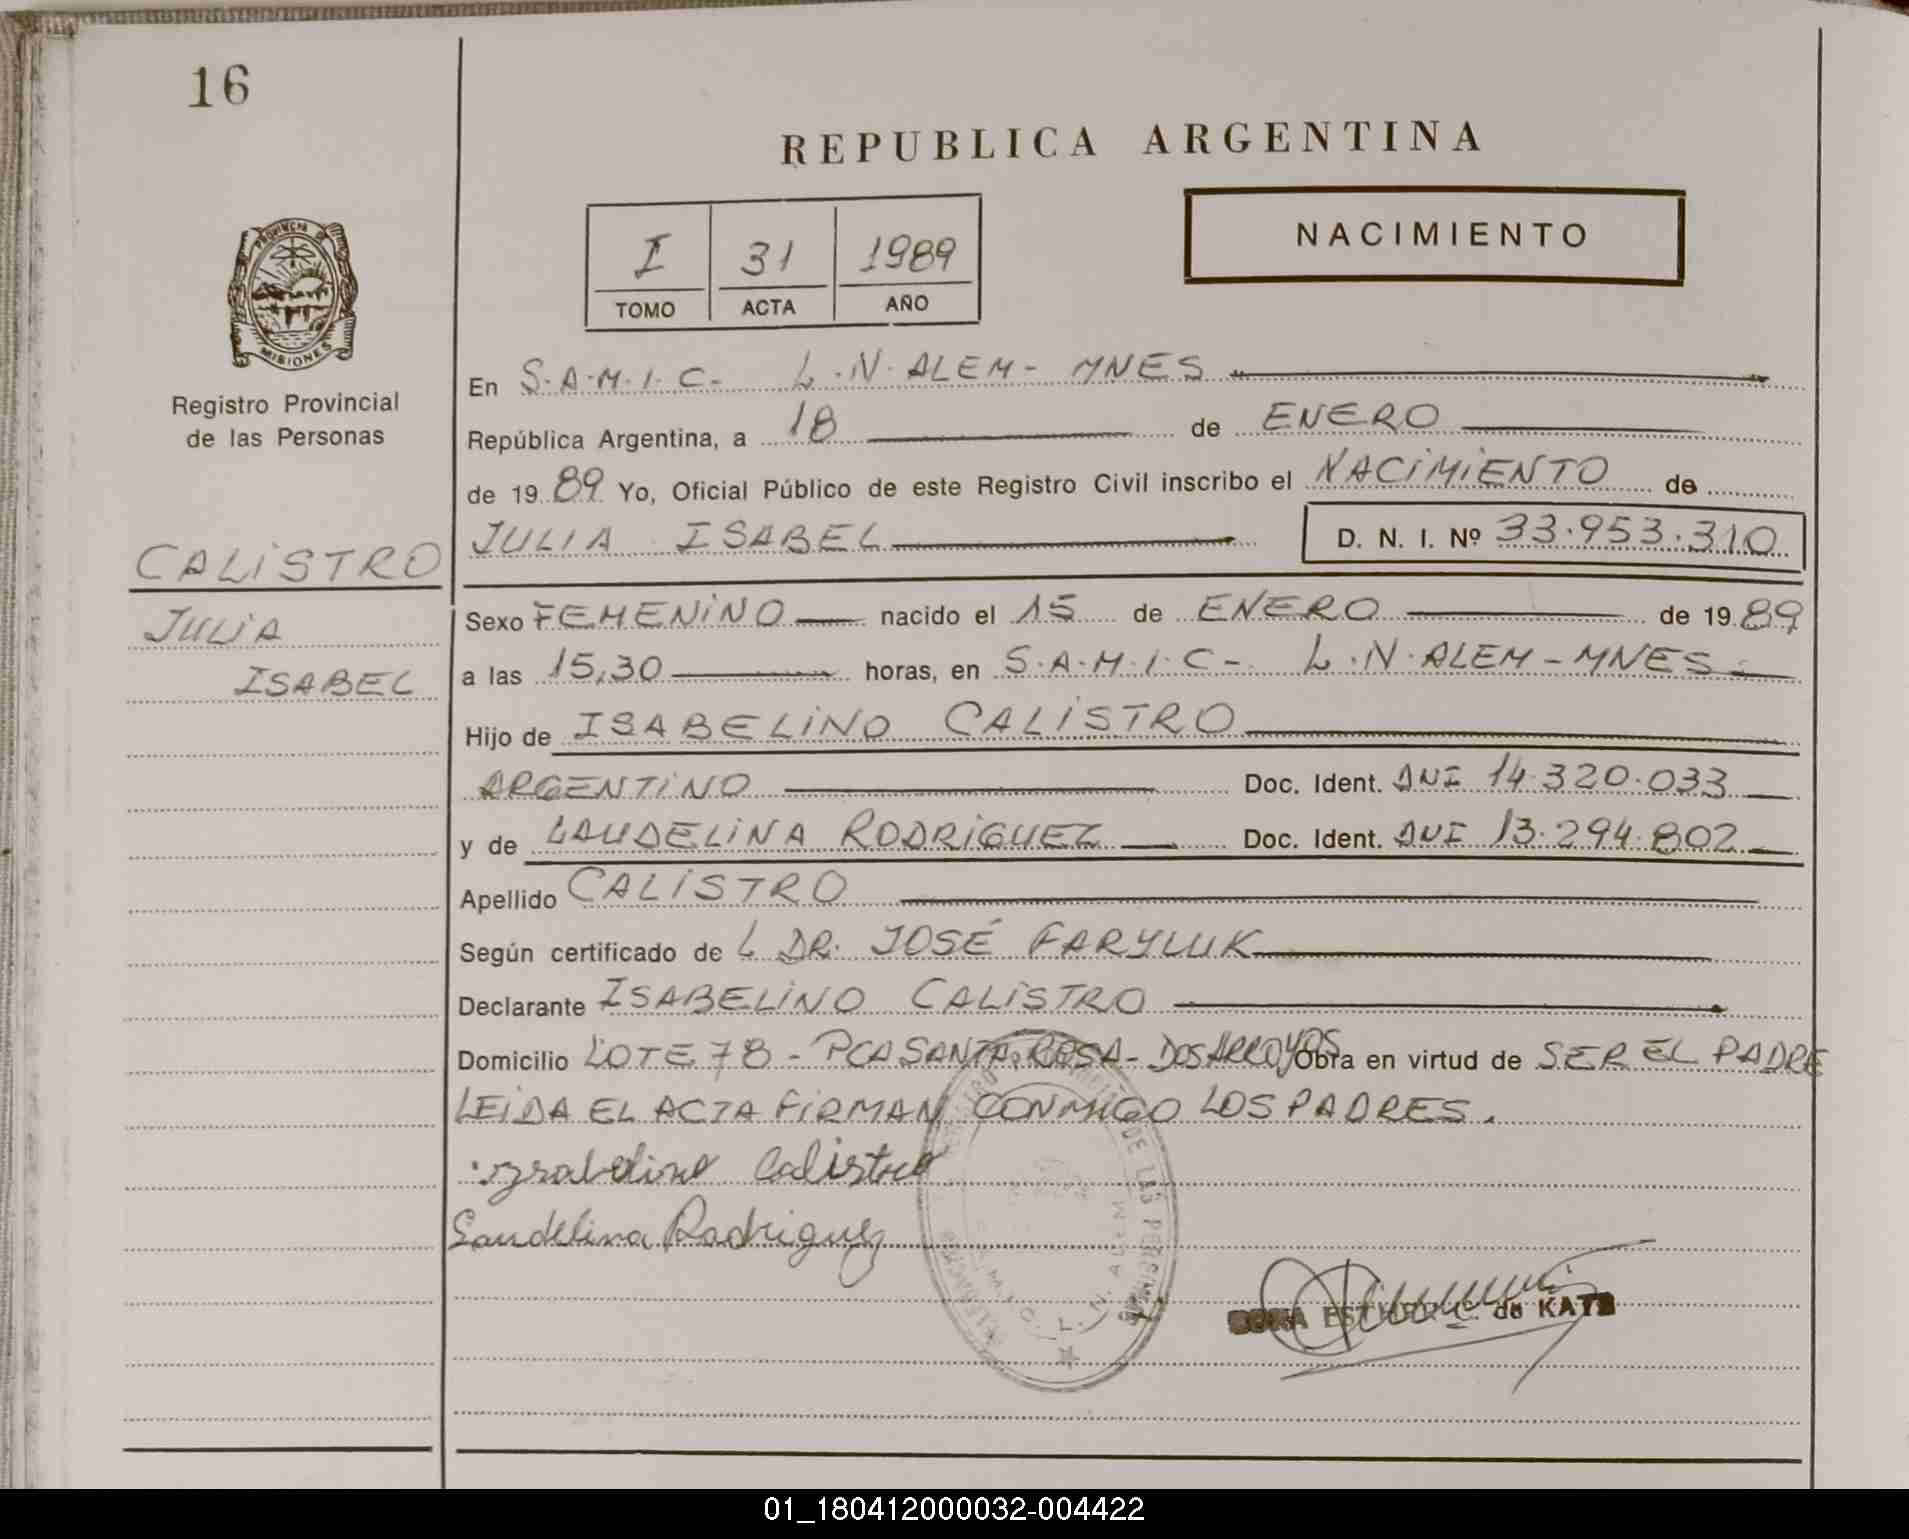 16
REPUBLICA ARGENTINA
PROVINCIA DE
MISIONES
Registro Provincial
de las Personas
I 31 1989
TOMO ACTA AÑO
NACIMIENTO
En S.A.M.I.C- L.N.ALEM- MNES
República Argentina, a 18 de ENERO
de 1989 Yo, Oficial Público de este Registro Civil inscribo el NACIMIENTO de
JULIA ISABEL D. N. I. Nº 33.953.310
CALISTRO
JULIA
ISABEL
Sexo FEMENINO nacido el 15 de ENERO de 1989
a las 15,30 horas, en S.A.M.I.C- L.N.ALEM-MNES-
Hijo de ISABELINO CALISTRO
ARGENTINO Doc. Ident. DNI 14.320.033
y de LAUDELINA RODRIGUEZ Doc. Ident. DNI 13.294.802
Apellido CALISTRO
Según certificado de L DR. JOSÉ FARYLUK
Declarante ISABELINO CALISTRO
Domicilio LOTE 78 - PCA SANTA ROSA- DOS ARROYOS Obra en virtud de SER EL PADRE
LEIDA EL ACTA FIRMAN CONMIGO LOS PADRES.
Isabelino Calistro
Laudelina Rodriguez
DE LAS PERSONAS
L. N. ALEM
ESTHER C. de KATZ
01_180412000032-004422